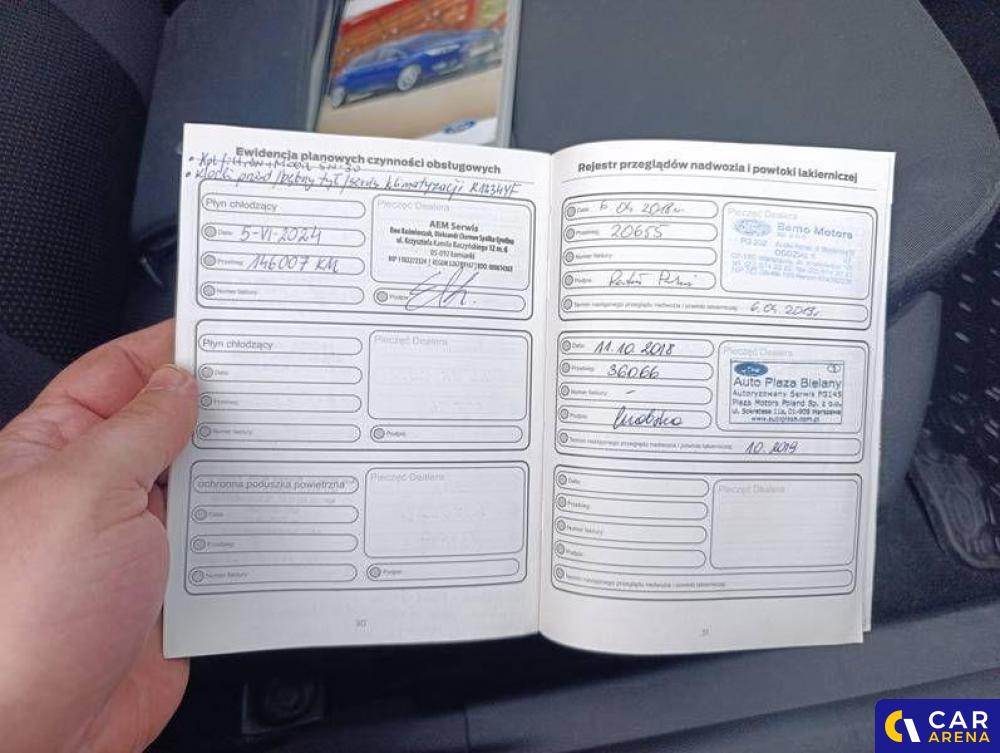 Ford
Ewidencja planowych czynności obsługowych
• Klocki przód / bębny tył / serwis klimatyzacji R1234YF
Płyn chłodzący
Data: 5-VI-2024
Przebieg: 146007 KM
Numer faktury:
Pieczęć Dealera
AEM Serwis
ul. Krzysztofa Kamila Baczyńskiego 12 m. 6
05-092 Łomianki
Podpis:
Płyn chłodzący
Data:
Przebieg:
Numer faktury:
Pieczęć Dealera
Podpis:
ochronna poduszka powietrzna
Data:
Przebieg:
Numer faktury:
Pieczęć Dealera
Podpis:
30
Rejestr przeglądów nadwozia i powłoki lakierniczej
Data: 6.04.2018r.
Przebieg: 20655
Numer faktury:
Podpis:
Pieczęć Dealera
Ford
Bemo Motors
Termin następnego przeglądu nadwozia i powłoki lakierniczej: 6.04.2019r.
Data: 11.10.2018
Przebieg: 36066
Numer faktury: -
Podpis:
Pieczęć Dealera
Ford
Auto Plaza Bielany
Autoryzowany Serwis PG145
Plaza Motors Poland Sp. z o.o.
ul. Sokratesa 11a, 01-909 Warszawa
Termin następnego przeglądu nadwozia i powłoki lakierniczej: 10.2019
Data:
Przebieg:
Numer faktury:
Podpis:
Pieczęć Dealera
Termin następnego przeglądu nadwozia i powłoki lakierniczej:
31
CAR
ARENA